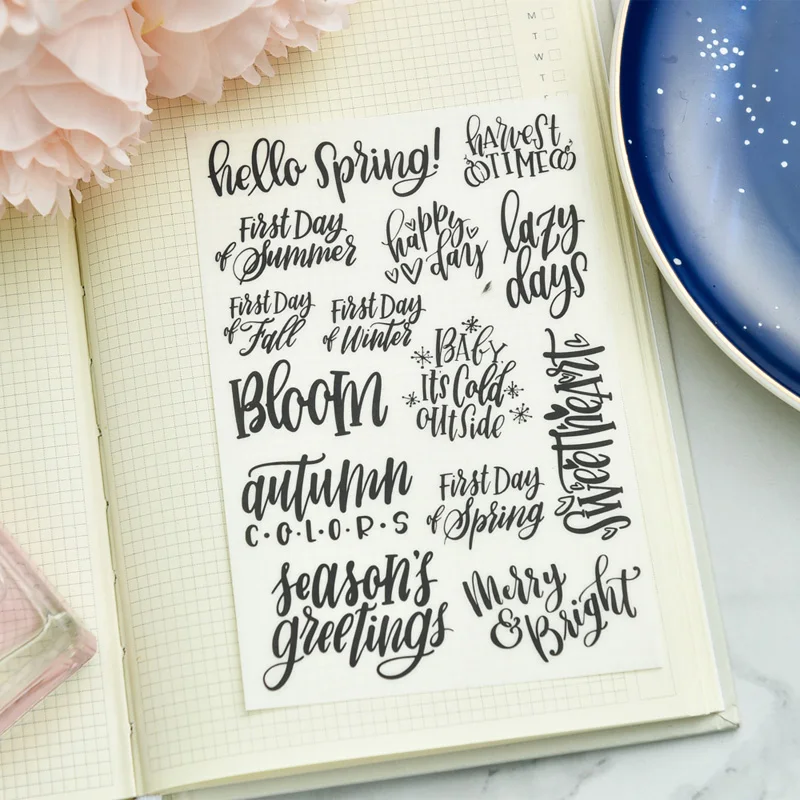 M
T
W
T
hello Spring!
harvest
TIME
First Day
of Summer
happy
day
lazy
days
First Day
of Fall
First Day
of Winter
BABY
It's Cold
outside
Bloom
Sweetheart
autumn
C·O·L·O·R·S
First Day
of Spring
season's
greetings
Merry
& Bright